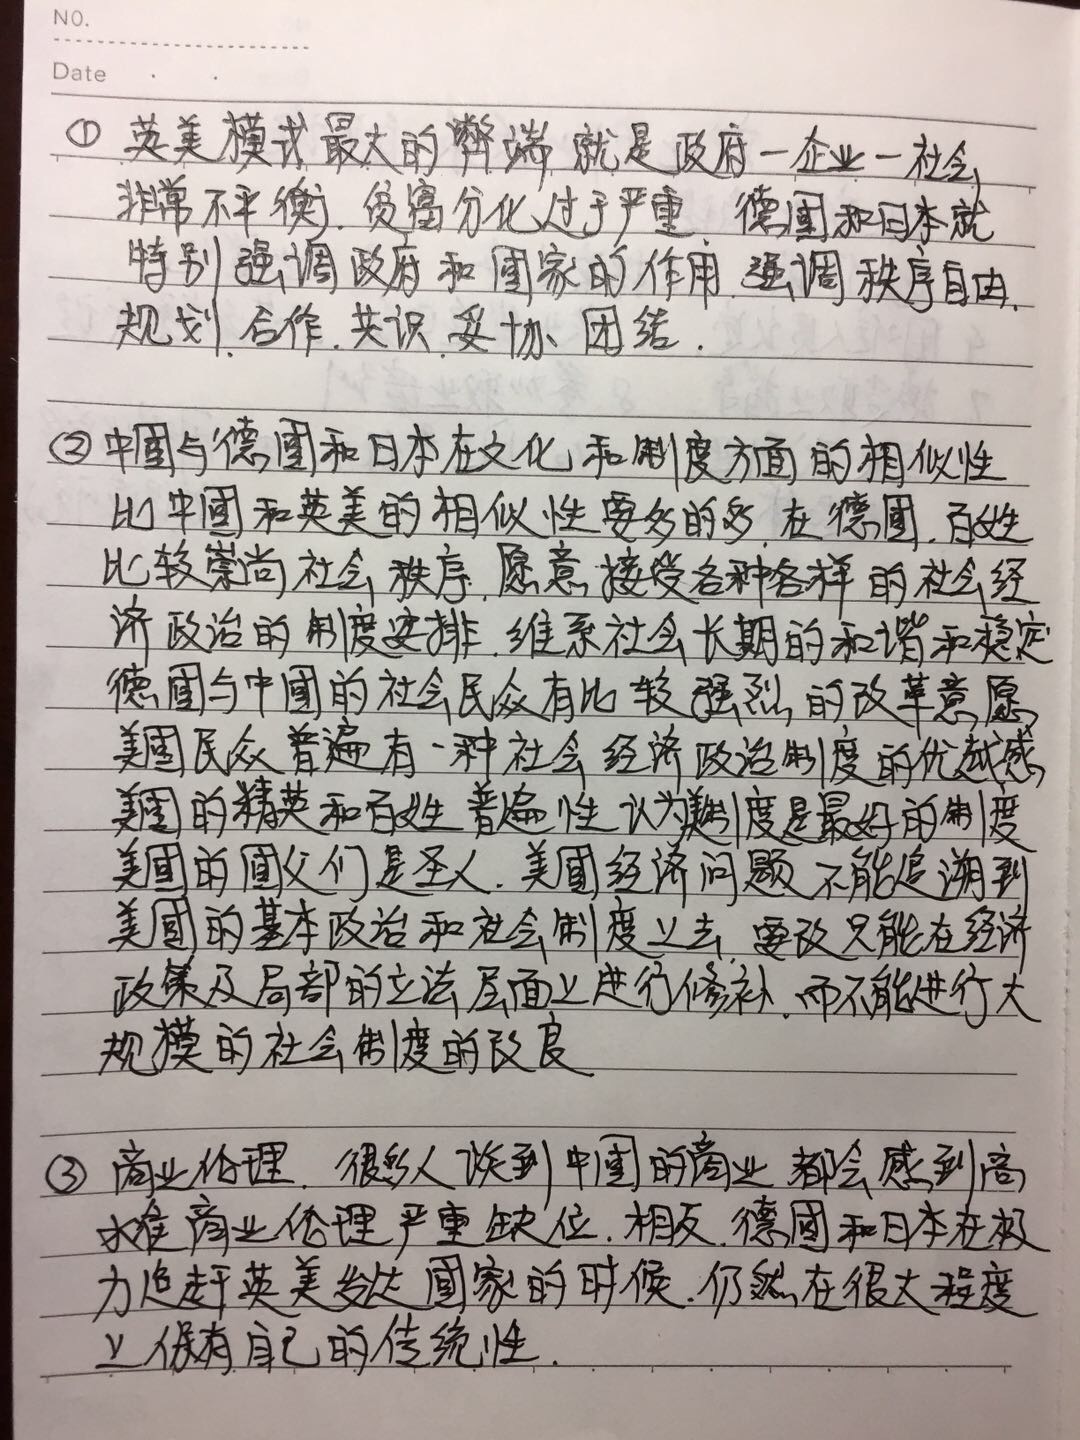 NO.
Date
① 英美模式最大的弊端就是政府一企业一社会
非常不平衡.贫富分化过于严重.德國和日本就
特别强调政府和國家的作用.强调秩序自由.
规划.合作.共识.妥协.团结.
② 中國与德國和日本在文化和制度方面的相似性
比中國和英美的相似性要多的多.在德國.百姓
比较崇尚社会秩序.愿意接受各种各样的社会经
济政治的制度安排.维系社会长期的和谐和稳定
德國与中國的社会民众有比较强烈的改革意愿
美國民众普遍有一种社会经济政治制度的优越感
美國的精英和百姓普遍性认为美制度是最好的制度
美國的國父们是圣人.美國经济问题不能追溯到
美國的基本政治和社会制度上去.要改只能在经济
政策及局部的立法层面上进行修补.而不能进行大
规模的社会制度的改良
③ 商业伦理.很多人谈到中國的商业都会感到高
水准商业伦理严重缺位.相反.德國和日本在极
力追赶英美发达國家的时候.仍然在很大程度
上保有自己的传统性.